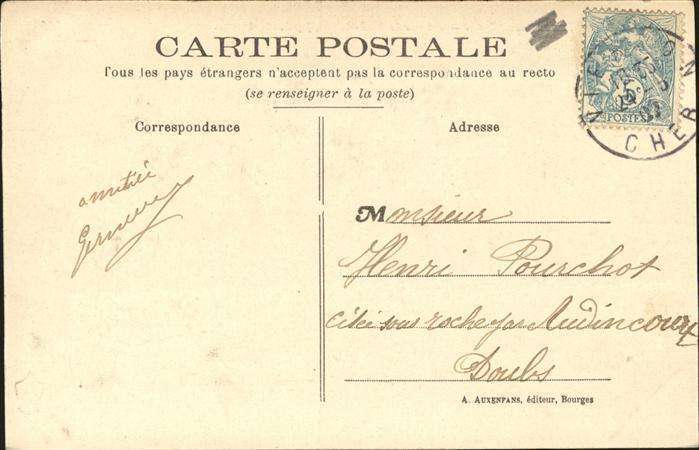 CARTE POSTALE
Tous les pays étrangers n'acceptent pas la correspondance au recto
(se renseigner à la poste)
Correspondance
Adresse
amitié
Monsieur
Henri Pourchot
cité sous roche par Audincourt
Doubs
A. AUXENFANS, éditeur, Bourges
5c
POSTES
VIERZON
CHER